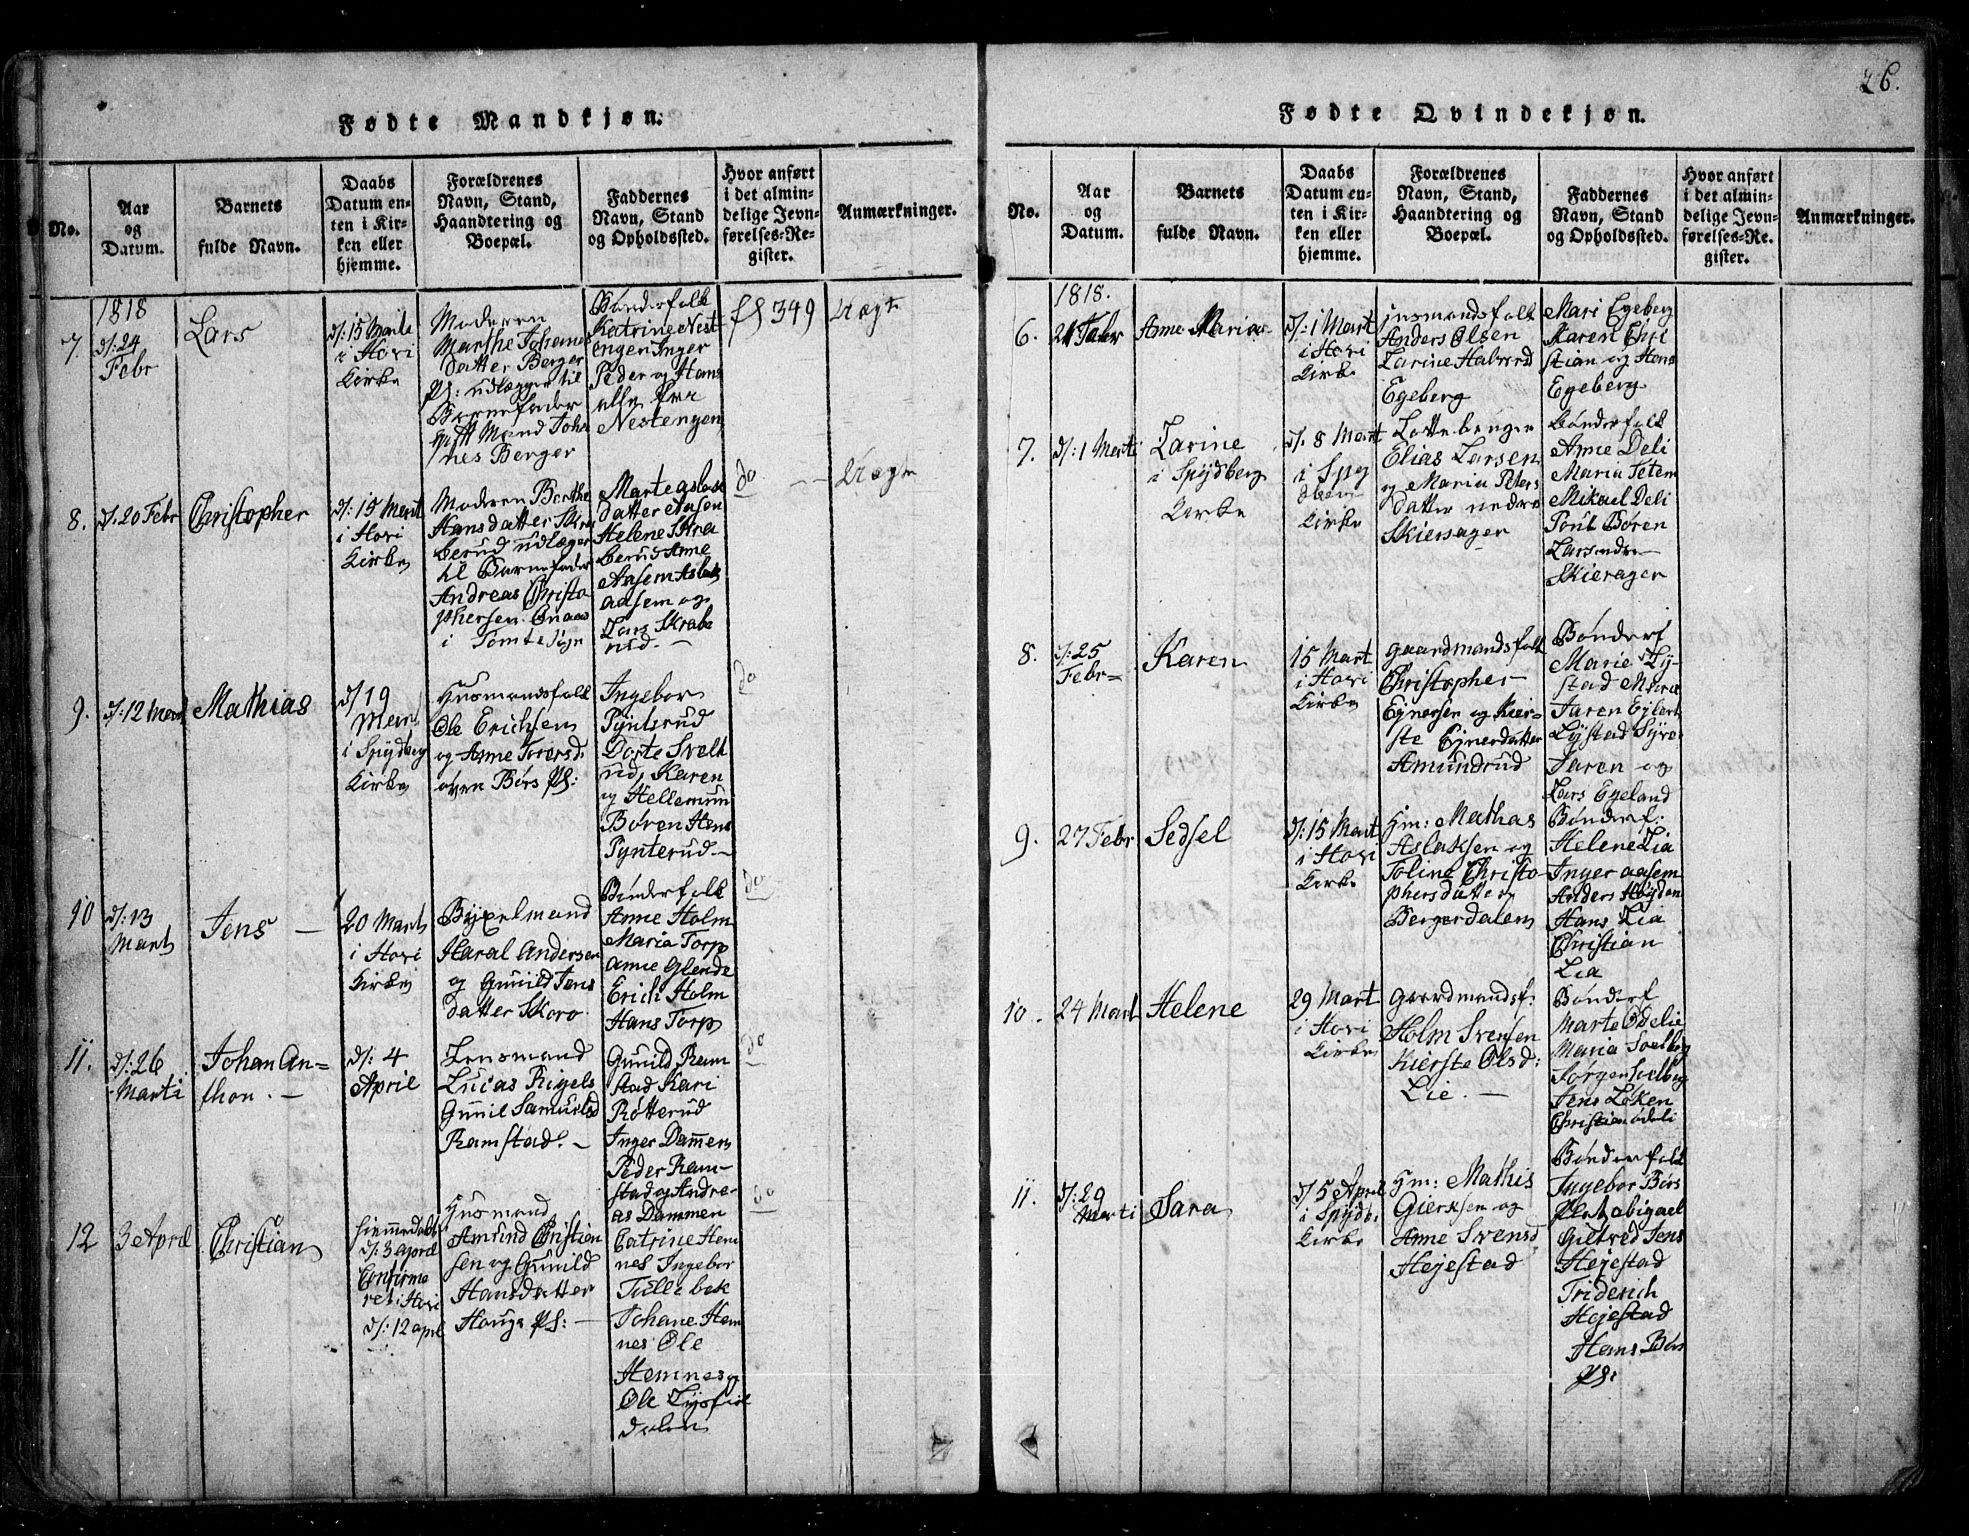 26.
Fødte Mandkjøn.
No.
Aar
og
Datum.
Barnets
fulde Navn.
Daabs
Datum en-
ten i Kir-
ken eller
hjemme.
Forældrenes
Navn, Stand,
Haandtering og
Boepæl.
Faddernes
Navn, Stand
og Opholdssted.
Hvor anført
i det almin-
delige Jevn-
førelses-Re-
gister.
Anmærkninger.
1818
7.
d/: 24
Febr
Lars
d/: 15 Marti
i Hovi
Kirke
Moderen
Marthe Johannes
datter Berger
Ps: udlægger til
Barnefader
Gift Mand Joha
nes Berger
Bønderfolk
Katrine Nest
engen Inger
Peder og Hans
alle fra
Nestengen
fS 349
Uægte
8.
d/: 20 Febr
Christopher
d/: 15 Mart
i Hovi
Kirke
Moderen Berthe
Hansdatter Skra
berud udlæger
til Barnefader
Andreas Christo
phersen
i Tomte Sogn
Marte Aslaks
datter Aasen
Helene Skra
berud Anne
Aasem Aslak
aasem og
Lars Skrabe
rud. —
do
Uægte
9.
d/: 12 Mart
Mathias
d/ 19
Mart
i Spydberg
Kirke
Husmandsfolk
Ole Erichsen
og Anne Torersd
oven Børs Ps:
Ingebor
Pynterud
Dorte Svelt
ud, Karen
og Hellemun
Børen Hens
Pynterud —
do
10
d/: 13
Marts
Jens —
20 Marts
i Hovi
Kirke
Byxelmand
Haral Andersen
og Gunild Jens
datter Skoro
Bønderfolk
Anne Holm
Maria Torp
anne Glende
Erich Holm
Hans Torp
do
11.
d/: 26
Marti
Johan An=
thon. —
d/: 4
April
Lensmand
Lucas Rigels
Gunil Samuelsd
Ramstad. —
Gunild Ram
stad Kari
Røtterud
Inger Dammen
Peder Ram-
stad og Andre-
as Dammen
do
12
3 April
Christian
hiemmedøbt
d/: 3 april
Confirme
ret i Hovi
d/: 12 april
Husmand
Amund Christian
sen og Gunild
Hansdatter
Houge Ps: —
Catrine Hem
nes Ingebor
Tullebek
Johane Hem
nes Ole
Hemnes og
Ole Lysfie
dalen
do
Fødte Qvindekjøn.
No.
Aar
og
Datum.
Barnets
fulde Navn.
Daabs
Datum en-
ten i Kir-
ken eller
hjemme.
Forældrenes
Navn, Stand,
Haandtering og
Boepæl.
Faddernes
Navn, Stand
og Opholdssted.
Hvor anført
i det almin-
delige Jevn-
førelses-Re-
gister.
Anmærkninger.
1818.
6.
Febr
Anne Maria
d/: 1 Mart
i Hovi
Kirke
Husmandsfolk
Anders Olsen
Larine Halvorsd
Egeberg
Mari Egeberg
Karen Chri
stian og Hans
Egeberg
7.
d/: 1 Marti
Larine
i Spydberg
Kirke
d/: 8 Mart
i Spy
dberg
Kirke
Elias Larsen
og Maria Peters
datter nedre
Skiersager
Bønderfolk
Anne Deli
Maria Tetem
Mikael Deli
Poul Børen
Lars nedre
Skierager
8.
d/: 25
Febr=
Karen
15 Mart
i Hovi
Kirke
gaardmandsfolk
Christopher
Ejnersen og Kier-
ste Ejnerdatter
Amundrud
Bønderf
Marie Ly-
stad Maria
Jaren Ejlert
Lystad Syver
Jaren og
Lars Egeland
9.
27 Febr
Sedsel
d/: 15 Mart
i Hovi
Kirke
Hm: Mathas
Aslaksen og
Toline Christo
phersdatter
Bergerdalen
Bønderf:
Helene Lia
Inger aasem
Anders Høgden
Hans Lia
Christian
Lia
10.
24 Mart
Helene
29 Mart
i Hovi
Kirke
Gaardmandsf.
Holm Svensen
Kierste Olsd:
Lie. —
Bønderf
Marte Odelie
Maria Soelberg
Jørgen Solberg
Jens Løken
Christian odeli
11.
d/: 29
Marti
Sara
d/ 5 April
i Spydb:
Kirke
Hm: Mathis
Gierksen og
Anne Svensd
Hejestad
Bønderfolk
Ingebor Børs
Plat abigael
Giltred Jens
Hejestad
Friderich
Hejestad
Hans Børs
Ps: